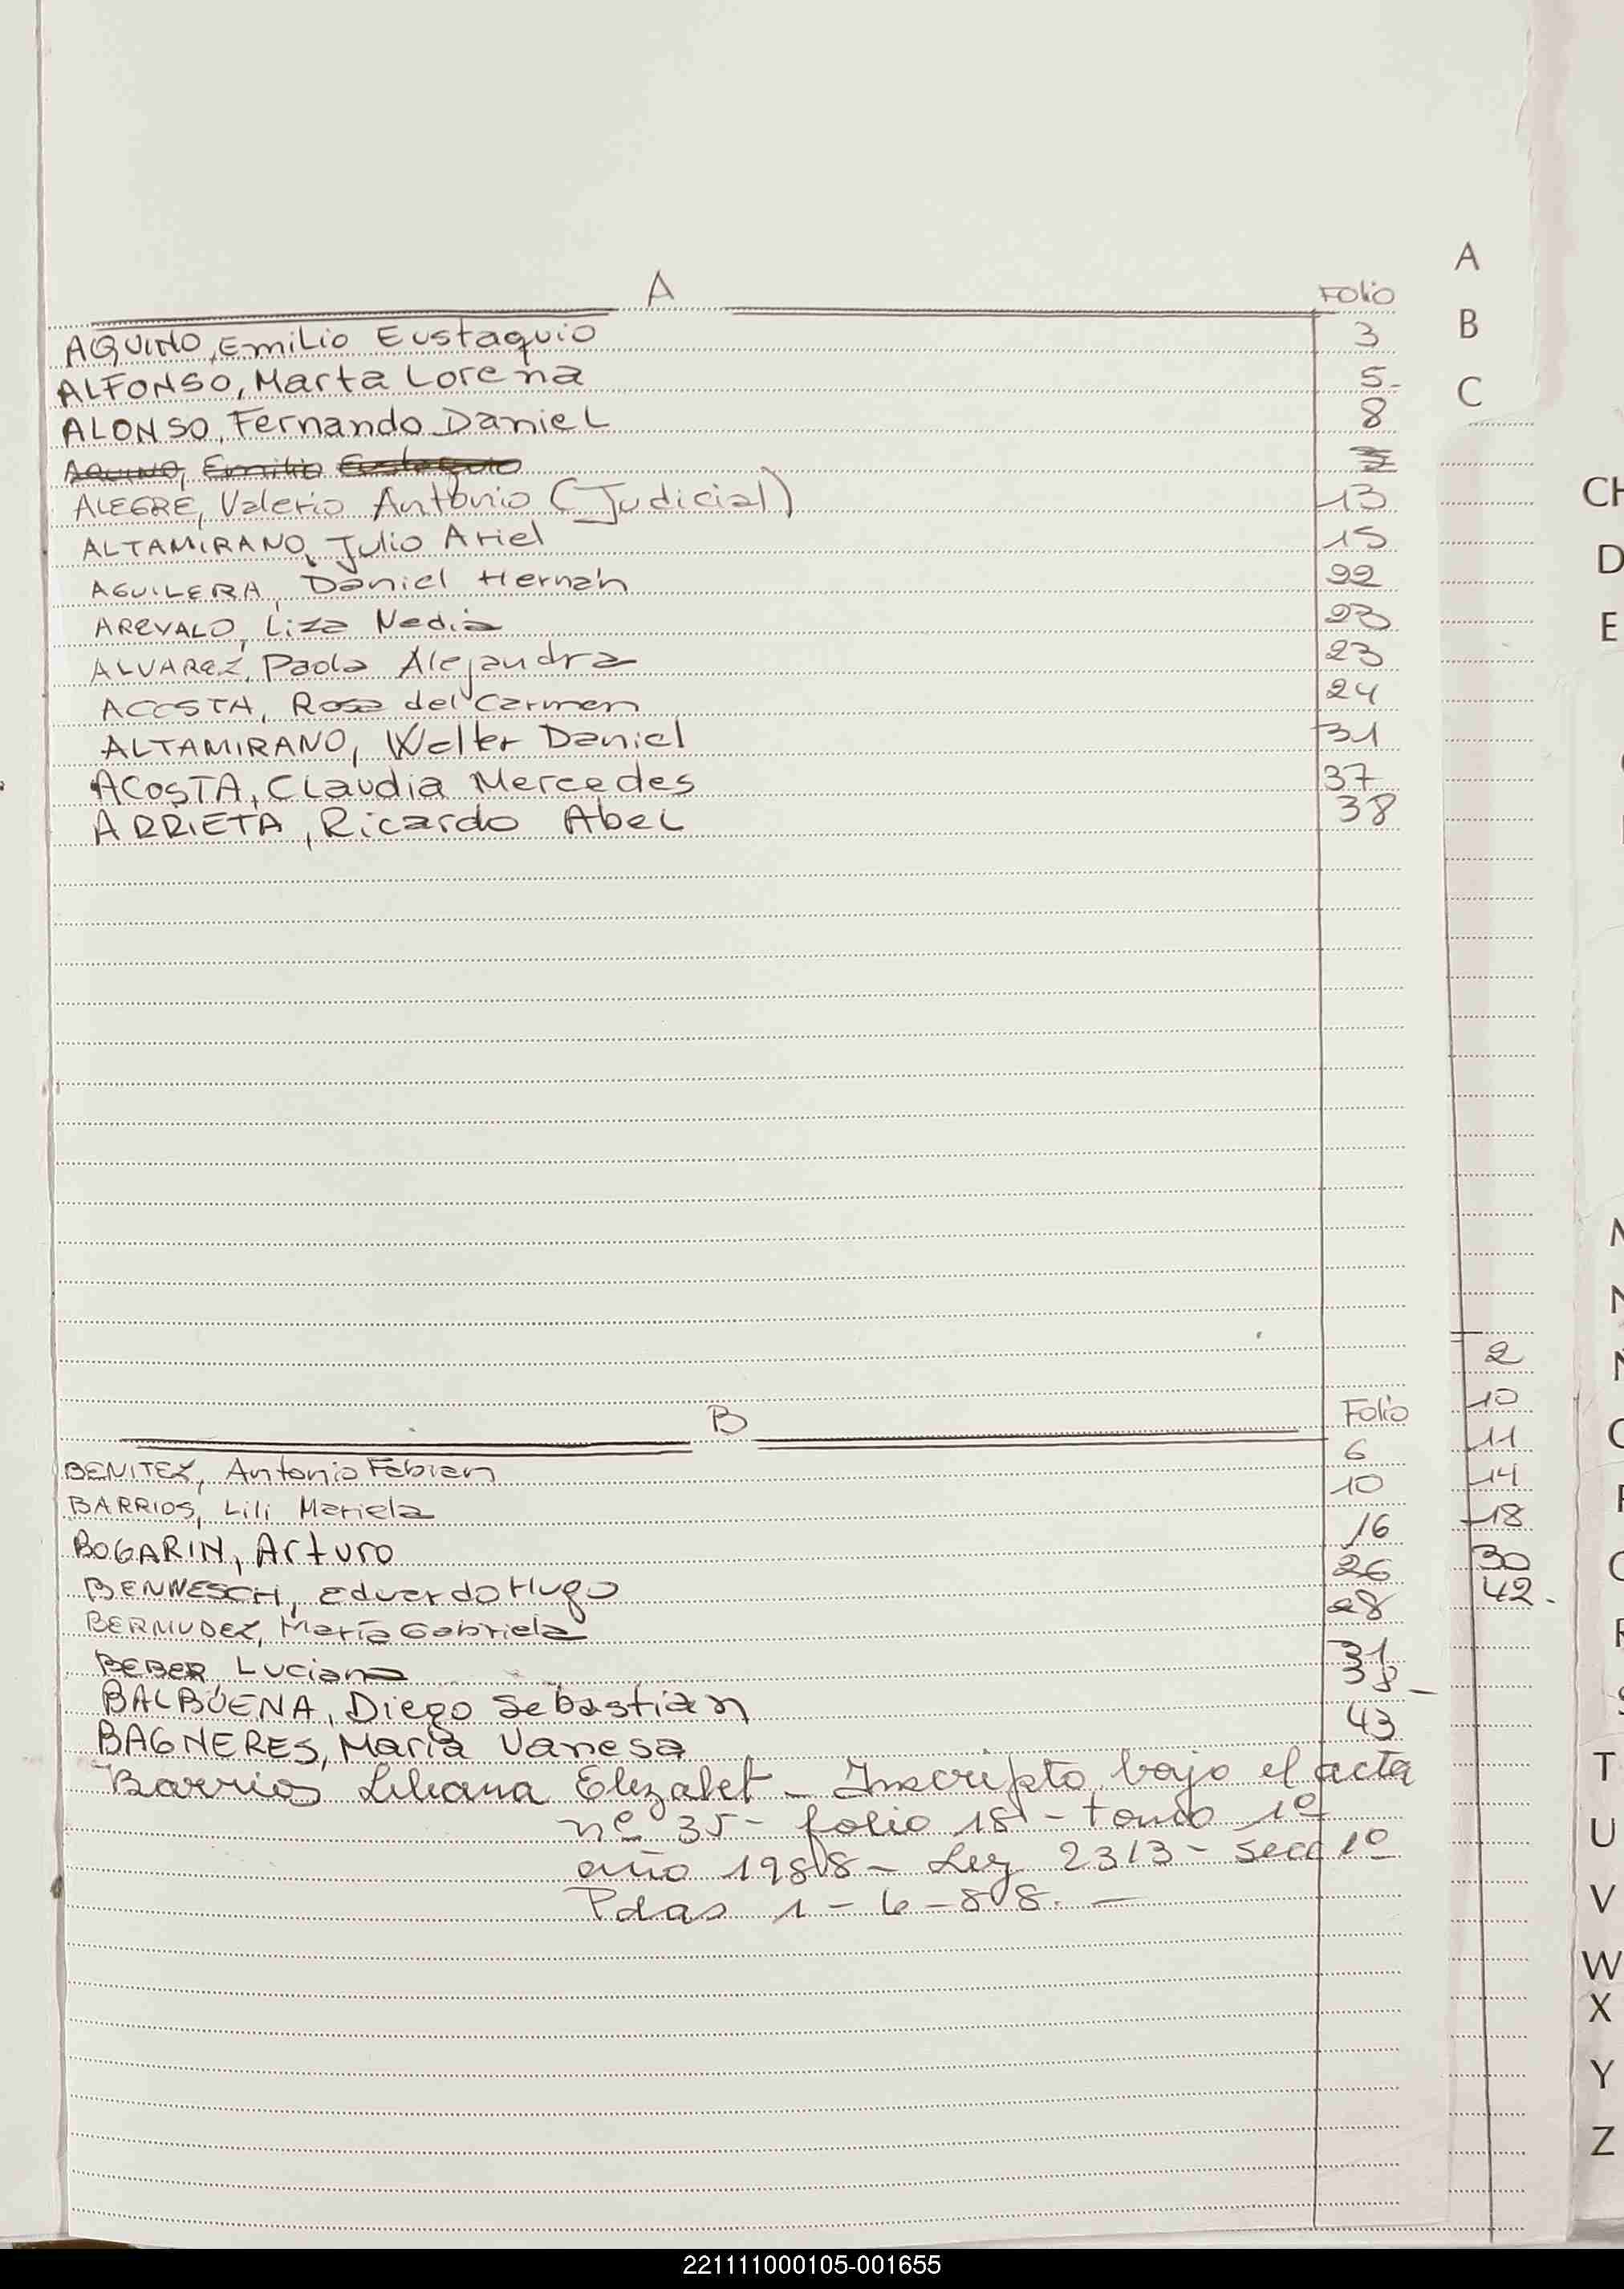 A
Folio
AQUINO, Emilio Eustaquio 3
ALFONSO, Marta Lorena 5-
ALONSO, Fernando Daniel 8
AQUINO, Emilio Eustaquio
ALEGRE, Valerio Antonio (Judicial) 13
ALTAMIRANO, Julio Ariel 15
AGUILERA, Daniel Hernán 22
AREVALO, Liza Nadia 23
ALVAREZ, Paola Alejandra 23
ACOSTA, Rosa del Carmen 24
ALTAMIRANO, Walter Daniel 31
ACOSTA, Claudia Mercedes 37
ARRIETA, Ricardo Abel 38
B
Folio
BENITEZ, Antonio Fabian 6
BARRIOS, Lili Mariela 10
BOGARIN, Arturo 16
BENNESCH, Eduardo Hugo 26
BERMUDEZ, María Gabriela 28
BEBER, Luciana 31
BALBUENA, Diego Sebastian 38-
BAGNERES, María Vanesa 43
Barrios Liliana Elizabet - Inscripto bajo el acta
nº 35 - folio 18 - tomo 1º
año 1988 - Ley 2313 - Secc 1º
Pdas 1-6-88. -
2
10
11
14
18
30
42.
A
B
C
CH
D
E
T
U
V
W
X
Y
Z
221111000105-001655